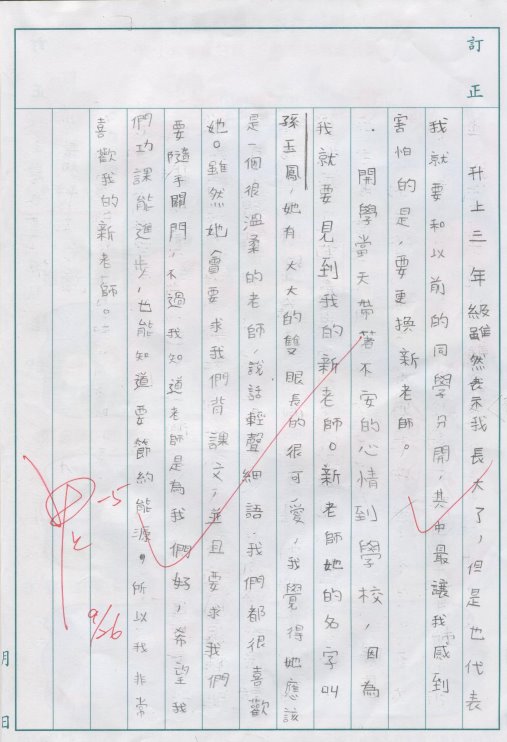 訂正
升上三年級雖然表示我長大了，但是也代表
我就要和以前的同學分開，其中最讓我感到
害怕的是，要更換新老師。
開學當天帶著不安的心情到學校，因為
我就要見到我的新老師。新老師她的名字叫
孫玉鳳，她有大大的雙眼長的很可愛，我覺得她應該
是一個很溫柔的老師，說話輕聲細語，我們都很喜歡
她。雖然她會要求我們背課文，並且要求我們
要隨手關門，不過我知道老師是為我們好，希望我
們功課能進步，也能知道要節約能源，所以我非常
喜歡我的新老師。
甲上
-5
9/26
月日